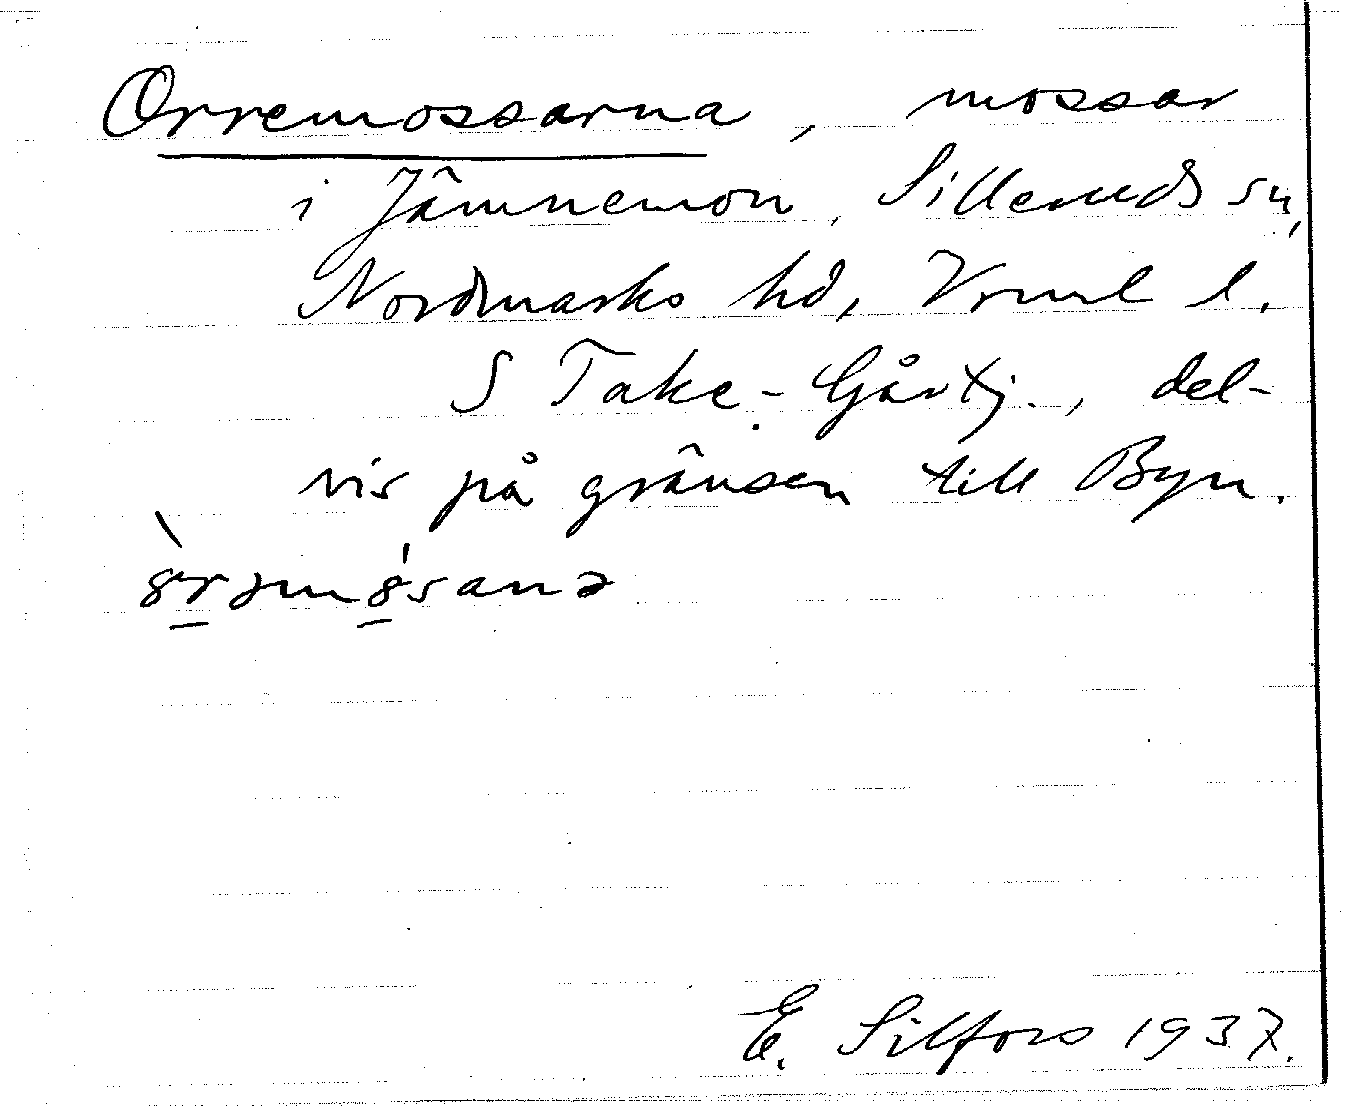 Orremossarna, mossar
i Jämnemon, Silleruds sn,
Nordmarks hd, Vrml l.
S Take-Gårtj., del-
vis på gränsen till Byn.
8̀rəm8́sanə
E. Silfors 1937.